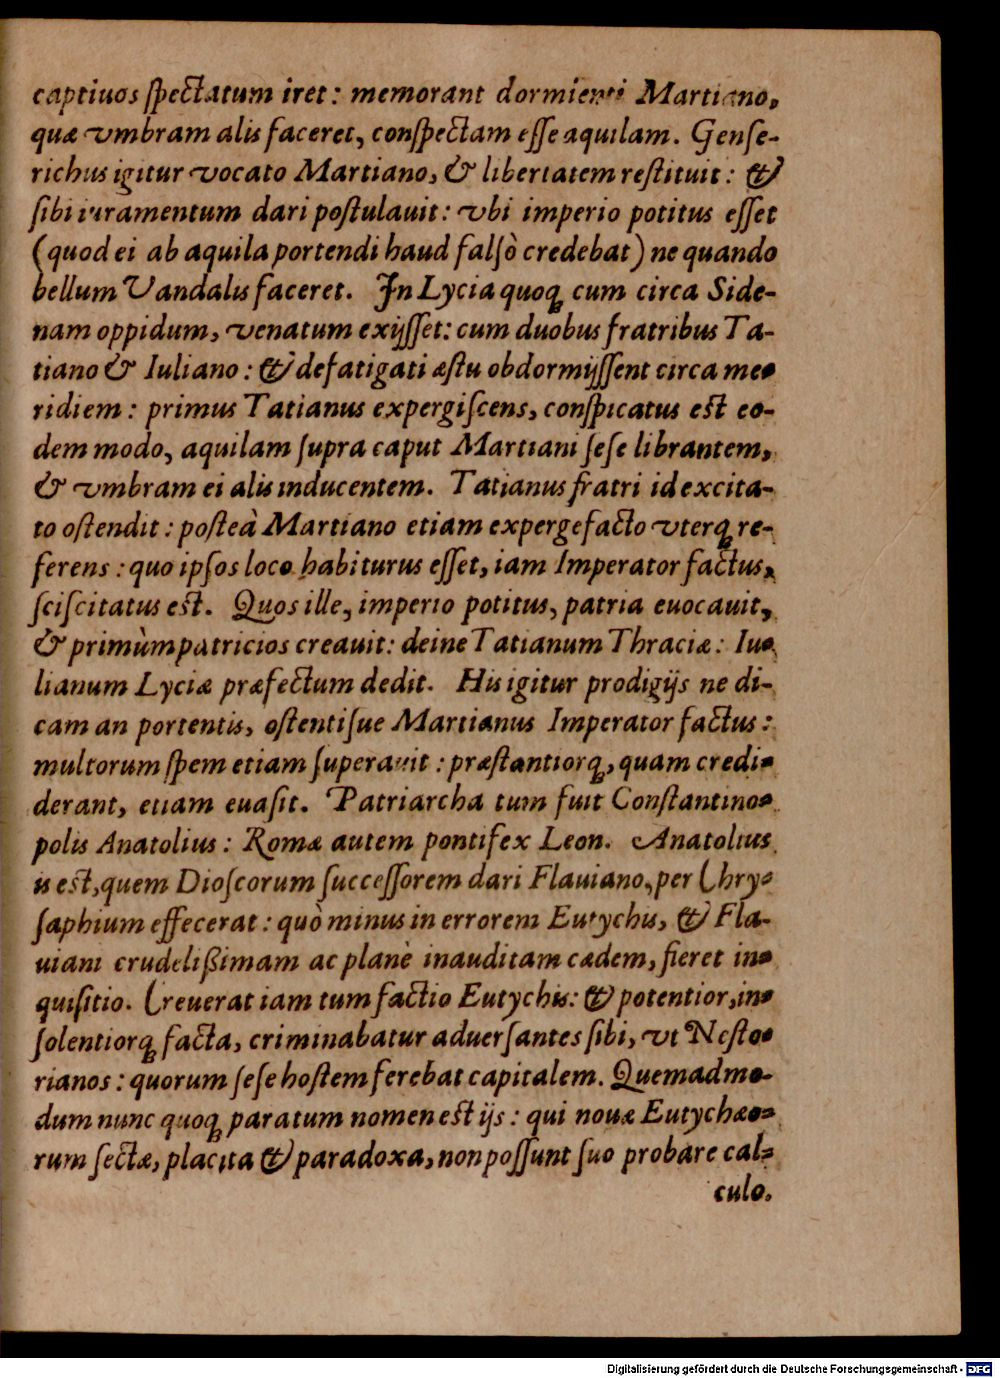 captiuos ſpectatum iret: memorant dormienti Martiano,
quæ vmbram alis faceret, conſpectam eſſe aquilam. Genſe-
richus igitur vocato Martiano, & libertatem reſtituit: &
ſibi iuramentum dari poſtulauit: vbi imperio potitus eſſet
(quod ei ab aquila portendi haud falſò credebat) ne quando
bellum Vandalis faceret. In Lycia quoqꝫ cum circa Side-
nam oppidum, venatum exijſſet: cum duobus fratribus Ta-
tiano & Iuliano: & defatigati æſtu obdormijſſent circa me-
ridiem: primus Tatianus expergiſcens, conſpicatus eſt eo-
dem modo, aquilam ſupra caput Martiani ſeſe librantem,
& vmbram ei alis inducentem. Tatianus fratri id excita-
to oſtendit: poſteà Martiano etiam expergefacto vterqꝫ re-
ferens: quo ipſos loco habiturus eſſet, iam Imperator factus,
ſciſcitatus eſt. Quos ille, imperio potitus, patria euocauit,
& primùm patricios creauit: deine Tatianum Thraciæ: Iu-
lianum Lyciæ præfectum dedit. His igitur prodigijs ne di-
cam an portentis, oſtentiſue Martianus Imperator factus:
multorum ſpem etiam ſuperauit: præſtantiorqꝫ, quam credi-
derant, etiam euaſit. Patriarcha tum fuit Conſtantino-
polis Anatolius: Romæ autem pontifex Leon. Anatolius
is eſt, quem Dioſcorum ſucceſſorem dari Flauiano, per Chry-
ſaphium effecerat: quò minus in errorem Eutychis, & Fla-
uiani crudelißimam ac planè inauditam cædem, fieret in-
quiſitio. Creuerat iam tum factio Eutychis: & potentior, in-
ſolentiorqꝫ facta, criminabatur aduerſantes ſibi, vt Neſto-
rianos: quorum ſeſe hoſtem ferebat capitalem. Quemadmo-
dum nunc quoqꝫ paratum nomen eſt ijs: qui nouæ Eutychæo-
rum ſectæ, placita & paradoxa, non poſſunt ſuo probare cal-
culo.
Digitalisierung gefördert durch die Deutsche Forschungsgemeinschaft - DFG